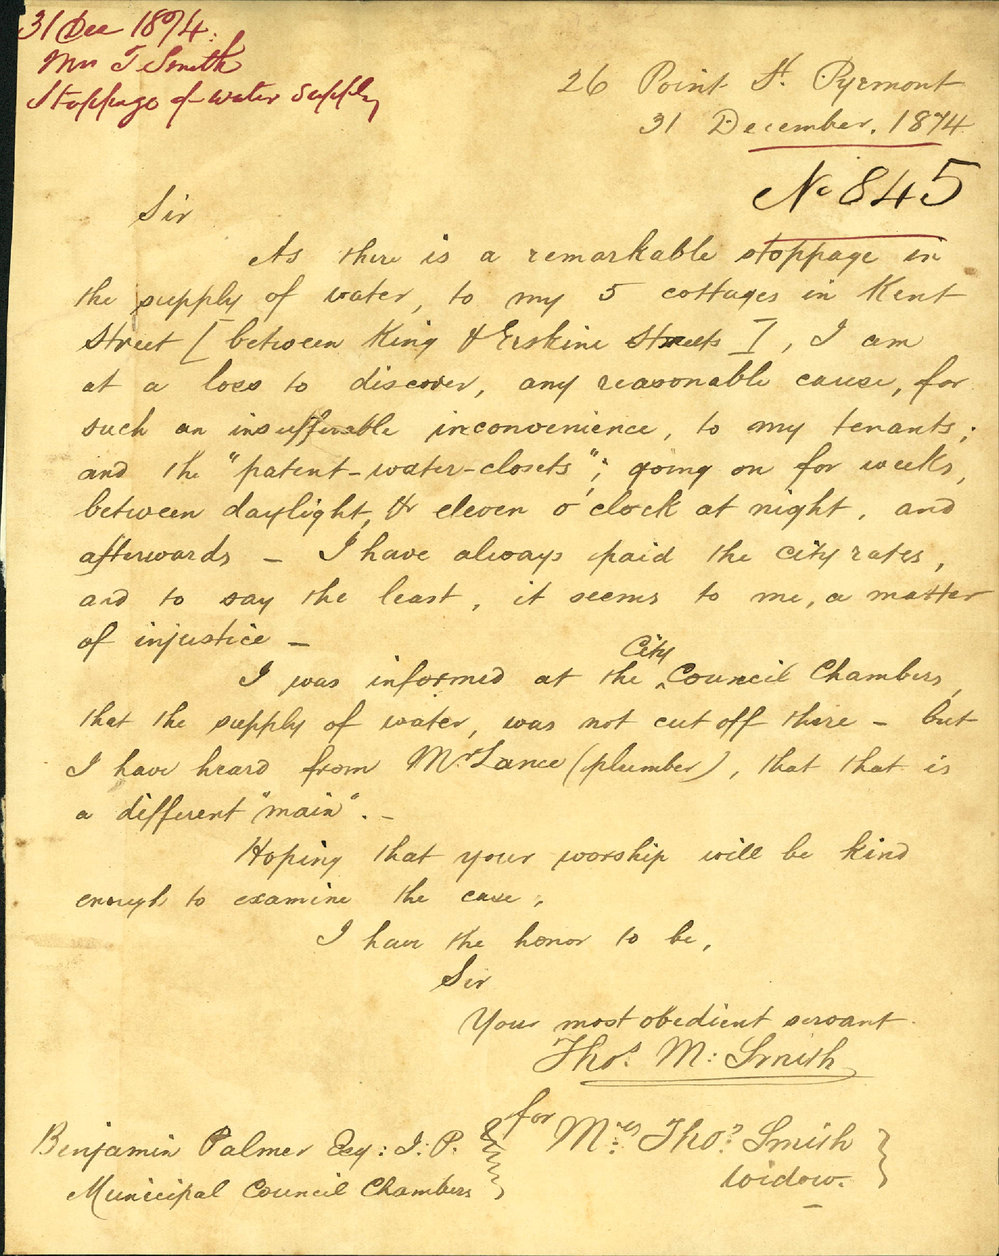 31 Dec 1874.
Mrs T Smith
Stoppage of water supply
26 Point St. Pyrmont
31 December. 1874
No 845
Sir
As there is a remarkable stoppage in
the supply of water, to my 5 cottages in Kent
Street [between King & Erskine Streets], I am
at a loss to discover, any reasonable cause, for
such an insufferable inconvenience, to my tenants;
and the "patent-water-closets"; going on for weeks,
between daylight, & eleven o'clock at night, and
afterwards - I have always paid the city rates,
and to say the least, it seems to me, a matter
of injustice -
I was informed at the City Council Chambers,
that the supply of water, was not cut off there - but
I have heard from Mr Lance (plumber), that that is
a different "main". -
Hoping that your worship will be kind
enough to examine the case,
I have the honor to be,
Sir
Your most obedient servant
Thos. M: Smith
for Mrs Thos. Smith
widow.
Benjamin Palmer Esq: J. P.
Municipal Council Chambers